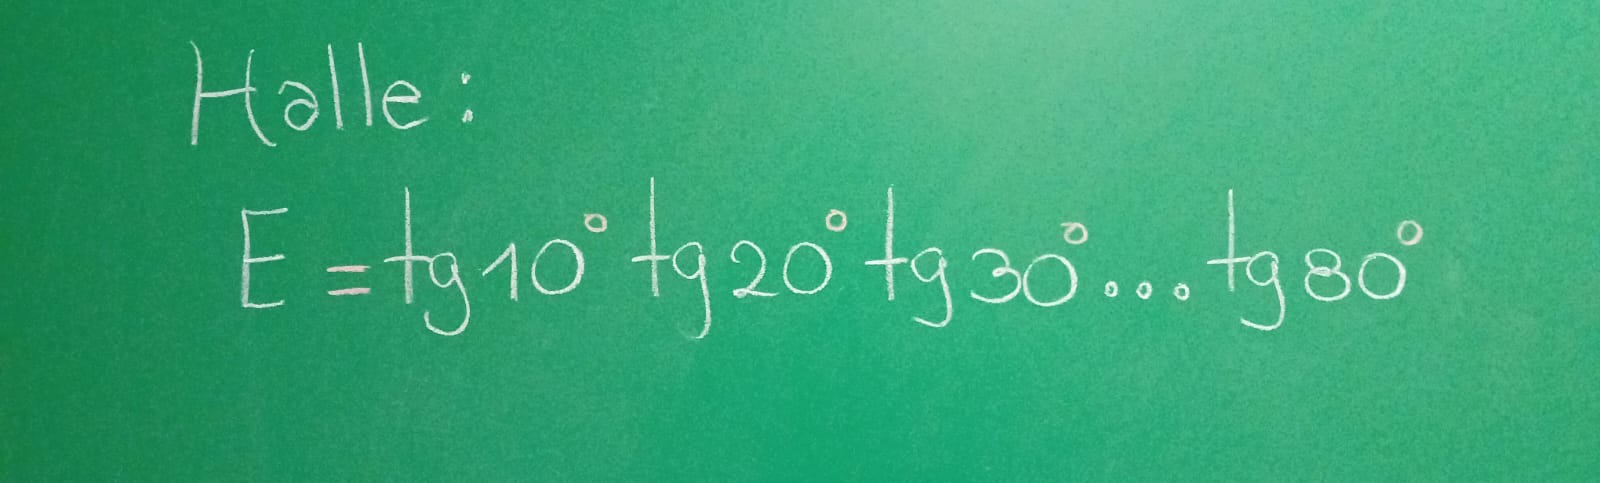 Halle:
E = tg 10° tg 20° tg 30° ... tg 80°